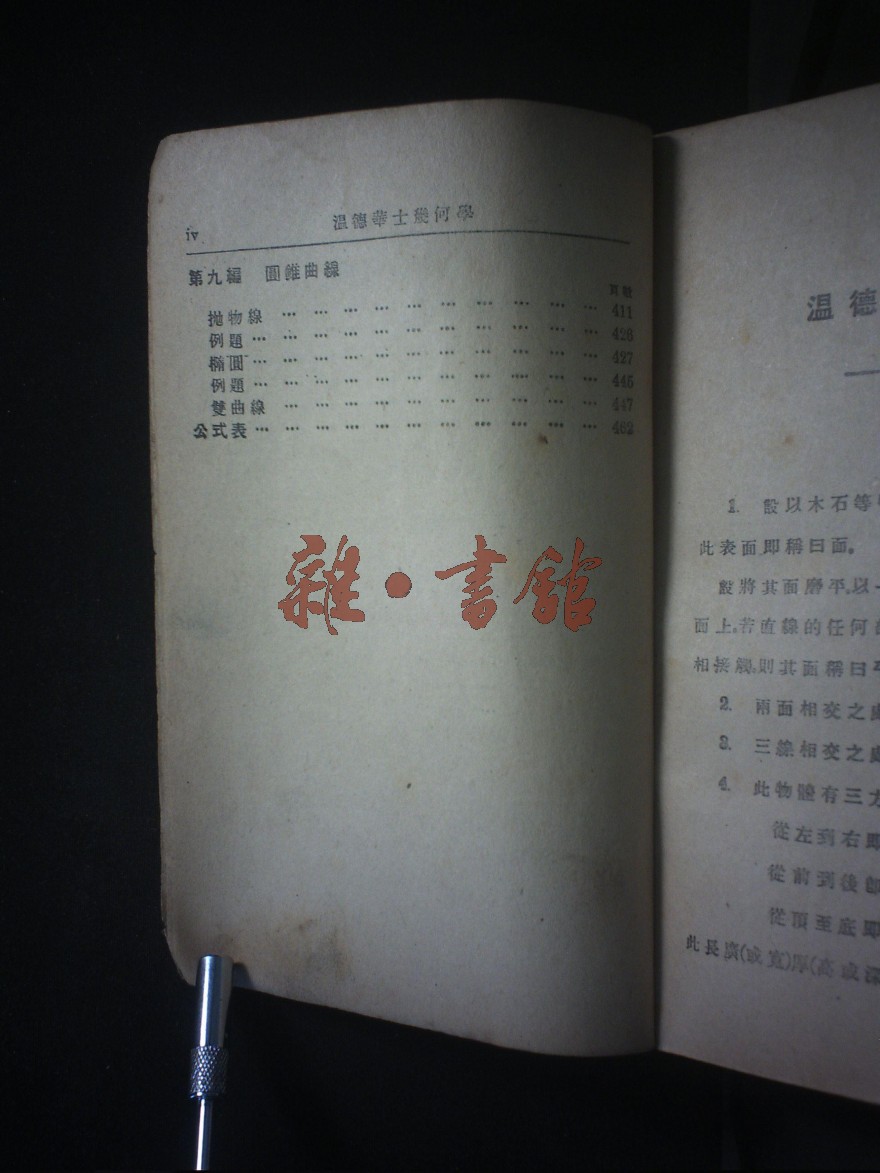 iv 溫德華士幾何學
第九編 圓錐曲線
頁數
拋物線 … … … … … … … … … … … 411
例題 … … … … … … … … … … … 426
橢圓 … … … … … … … … … … … 427
例題 … … … … … … … … … … … 445
雙曲線 … … … … … … … … … … … 447
公式表 … … … … … … … … … … … 462
雜·書館
溫德
1. 設以木石等
此表面即稱曰面。
設將其面磨平,以一
面上,若直線的任何
相接觸,則其面稱曰
2. 兩面相交之
3. 三線相交之
4. 此物體有三
從左到右即
從前到後即
從頂至底即
此長廣(或寬)厚(高或深